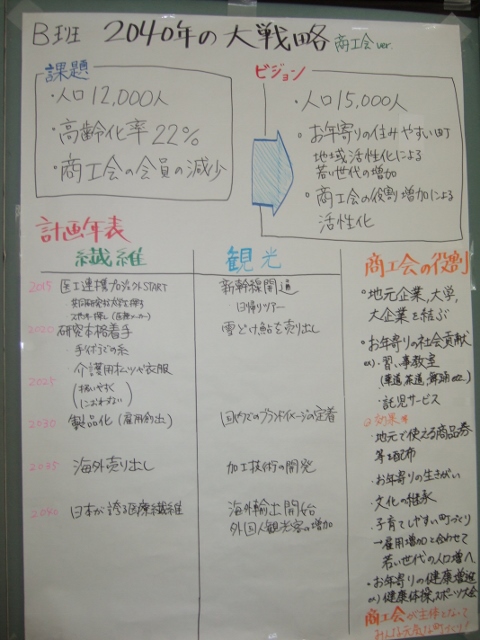 B班 2040年の大戦略 商工会 ver.
課題
・人口12,000人
・高齢化率22%
・商工会の会員の減少
ビジョン
・人口15,000人
・お年寄りの住みやすい町
地域活性化による
若い世代の増加
・商工会の役割増加による
活性化
計画年表
繊維
2015 医工連携プロジェクトSTART
・共同研究する大学を探す
2020 研究本格着手
手術までの糸
2025 ・介護用オムツや衣服
2030 製品化(雇用創出)
2035 海外売り出し
2040 日本が誇る医療繊維
観光
新幹線開通
・日帰りツアー
雪どけ鮎を売り出し
国内でのブランドイメージの定着
加工技術の開発
海外輸出開始
外国人観光客の増加
商工会の役割
・地元企業、大学、
大企業を結ぶ
・お年寄りの社会貢献
ex)・習い事教室
(華道、茶道、舞踊 etc.)
・託児サービス
効果
・地元で使える商品券
等を配布
・お年寄りの生きがい
・文化の継承
・子育てしやすい町づくり
→雇用増加と合わせて
若い世代の人口増へ
・お年寄りの健康増進
ex)健康体操、スポーツ大会
商工会が主体となって